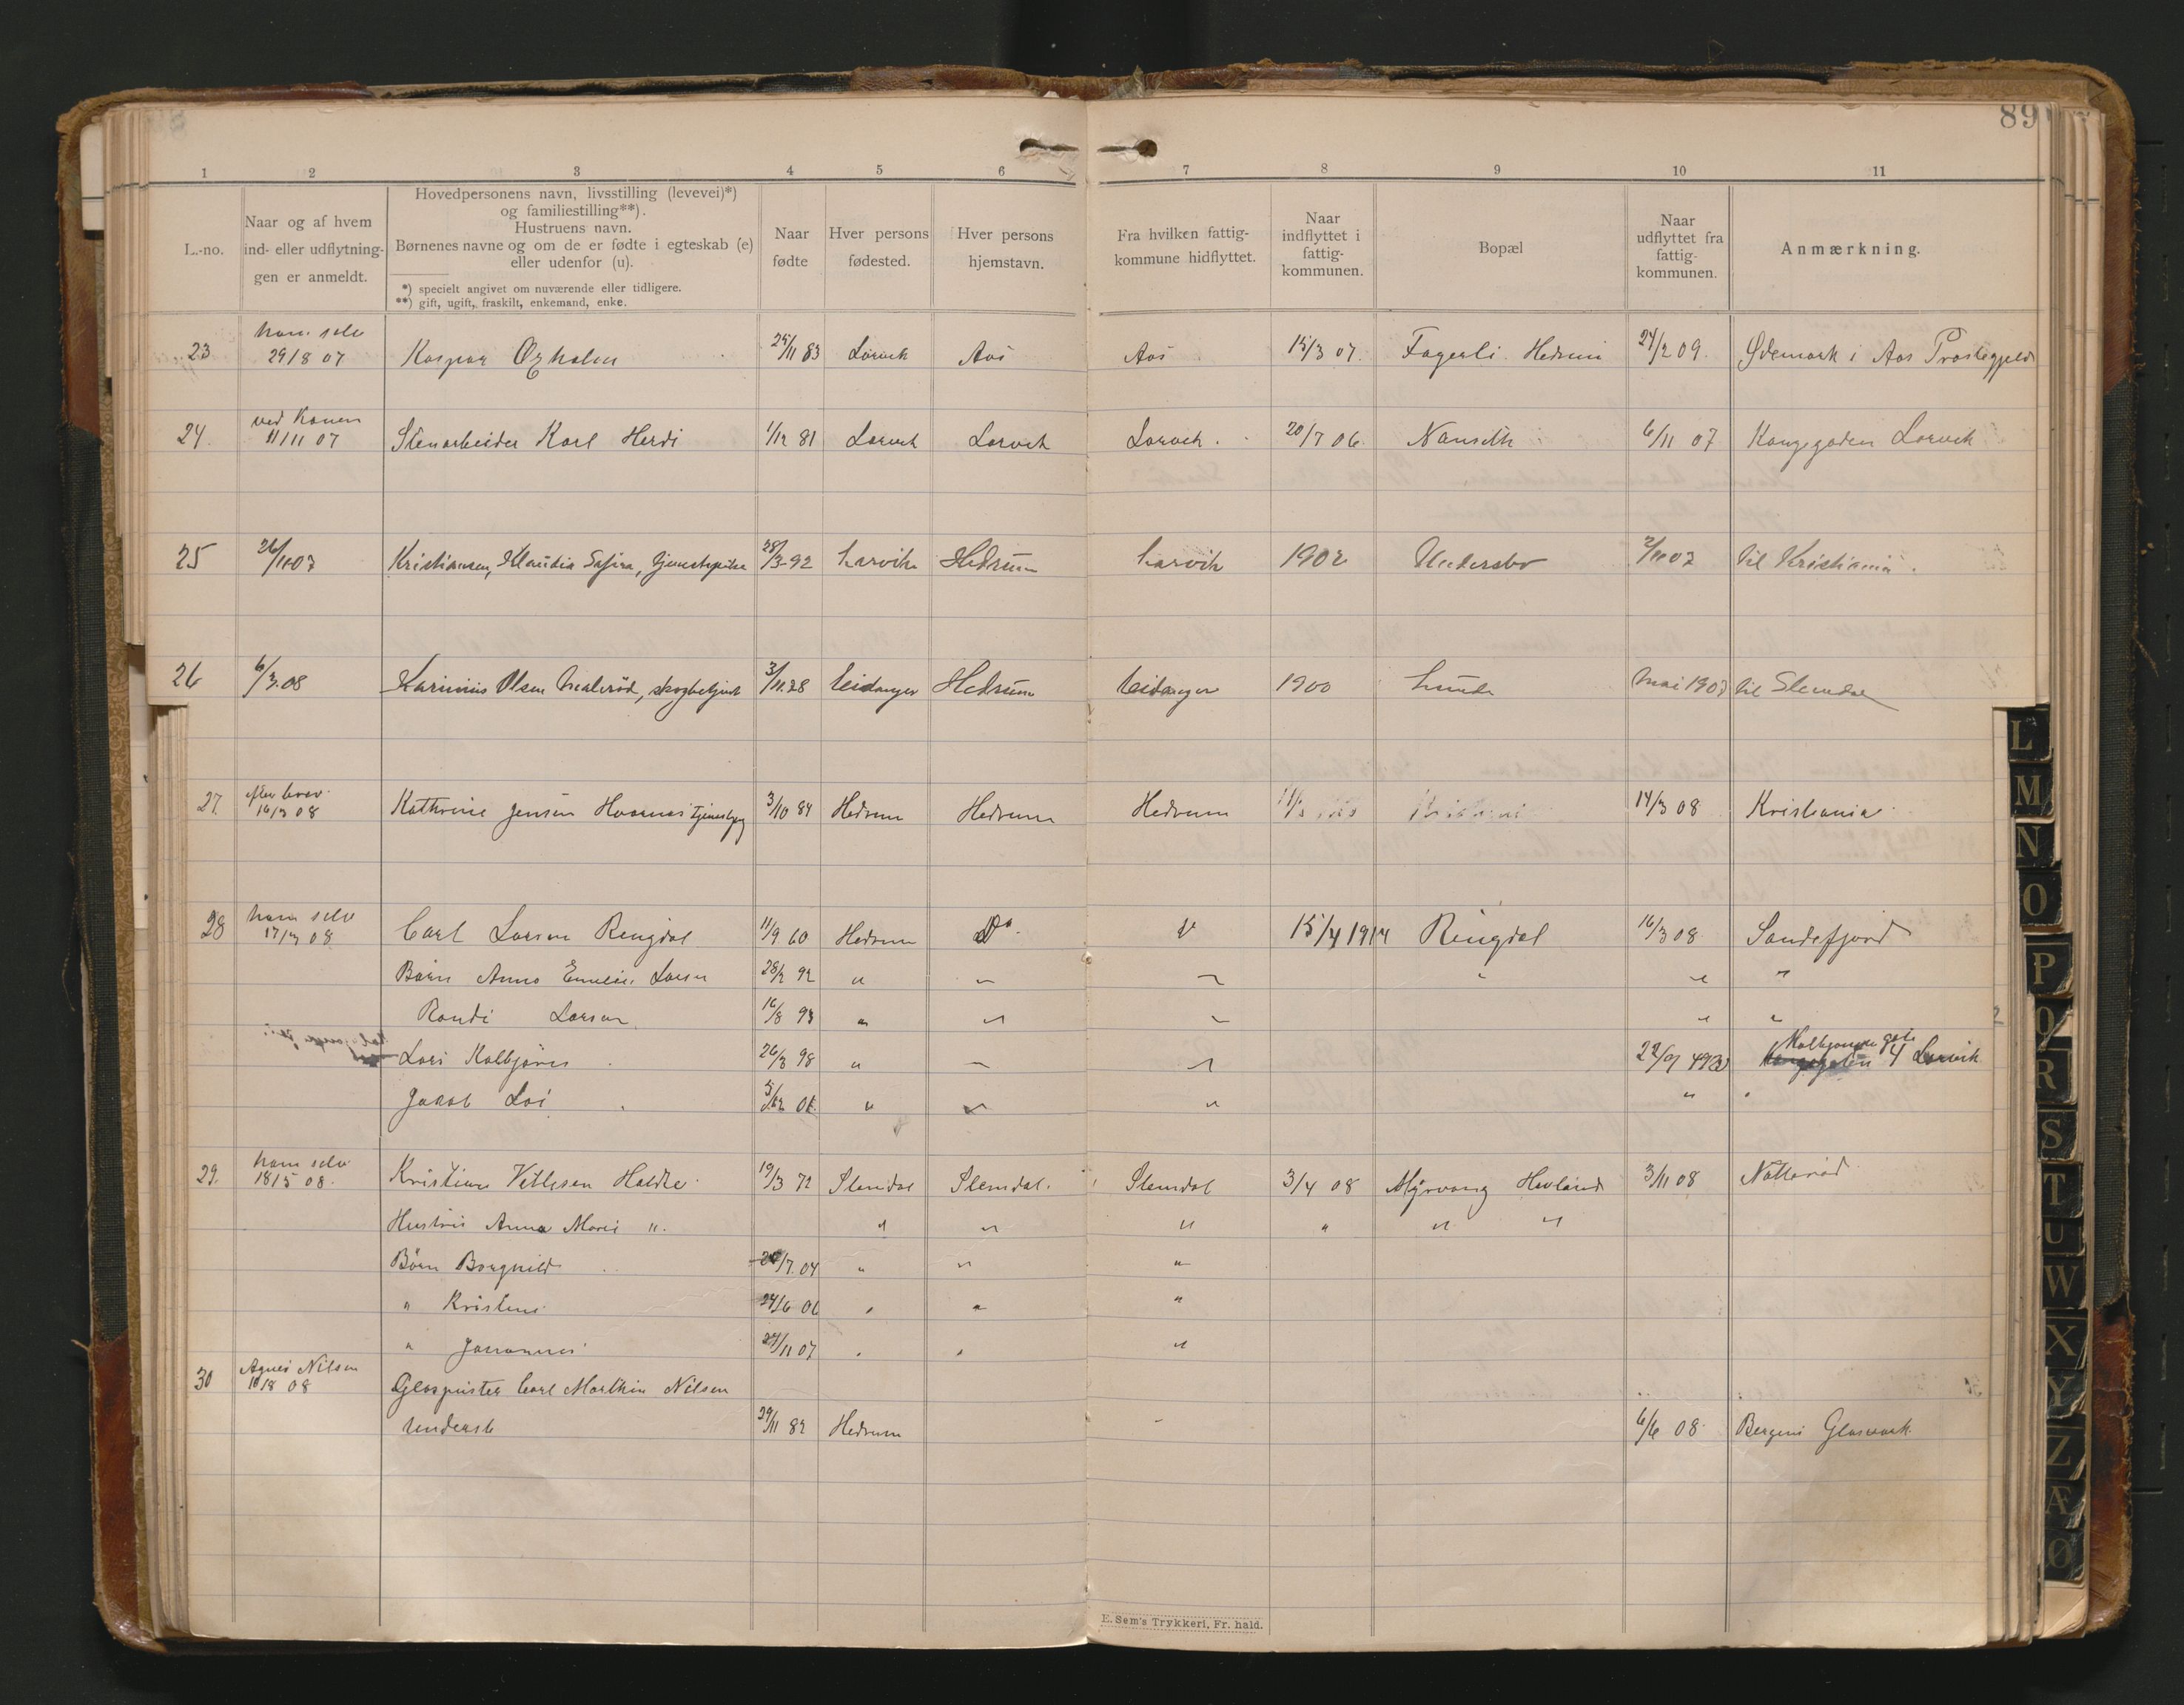 89
1 2 3 4 5 6 7 8 9 10 11
L.-no.
Naar og af hvem
ind- eller udflytning-
gen er anmeldt.
Hovedpersonens navn, livsstilling (levevei)*)
og familiestilling**).
Hustruens navn.
Børnenes navne og om de er fødte i egteskab (e)
eller udenfor (u).
*) specielt angivet om nuværende eller tidligere.
**) gift, ugift, fraskilt, enkemand, enke.
Naar
fødte
Hver persons
fødested.
Hver persons
hjemstavn.
Fra hvilken fattig-
kommune hidflyttet.
Naar
indflyttet i
fattig-
kommunen.
Bopæl
Naar
udflyttet fra
fattig-
kommunen.
Anmærkning.
ham selv
23 29/8 07 Kaspar 25/11 83 Larvik Aas Aas 15/3 07. Fagerli Hedrum 24/2 09. Ødemark i Aas Prestegjeld
ved Konen
24. 11/11 07 Stenarbeider Karl Herdi 1/12 81 Larvik Larvik Larvik. 20/7 06. Nanseth 6/11 07 Kongegaden Larvik
25 26/11 07 Kristiansen, Klaudia Safira, tjenestepike 28/3-92 Larvik Hedrum Larvik 1902 Undersbo 2/11 07 til Kristiania.
26 6/3.08 Karinius Olsen skogbetjent 3/11.28 Eidanger Hedrum Eidanger 1900 Lunde Mai 1907 til Slemdal
efter brev
27. 16/3 08 Kathrine Jensen Hvarnes tjenestepg 3/10 84 Hedrum Hedrum Hedrum 14/3 08 Kristiania
ham selv
28 17/3 08 Carl Larsen Ringdal 11/9 60 Hedrum Do. 15/4 1914 Ringdal 16/3 08. Sandefjord
Børn Anna Emelie Larsen 28/2 92 " " " " " "
Randi Larsen 16/8 93 " " " " "
Kolbjørns gate
Lars Kolbjörn 26/3 98 " " " 4 Larvik
Jakob " " " " "
ham selv
29. 18/5 08. Kristian Vetlesen Holdte 19/3 72 Slemdal Slemdal. Slemdal 3/4 08 Myrvang Hevland 3/11 08 Nøtterød
Hustru Anna Marie ". " " " " " "
Børn Borghild /7. 04 " " "
" Kristine 24/6 06 " " "
" Johannes 27/11 07 " " "
Agnes Nilsen
30 10/8 08 Glaspuster Carl Marthin Nilsen
Undersb 29/11 82 Hedrum 6/6 08 Bergens Glasværk.
E. Sem's Trykkeri, Fr. hald.
L
M
N
O
P
Q
R
S
T
U
W
X
Y
Z
Æ
Ø